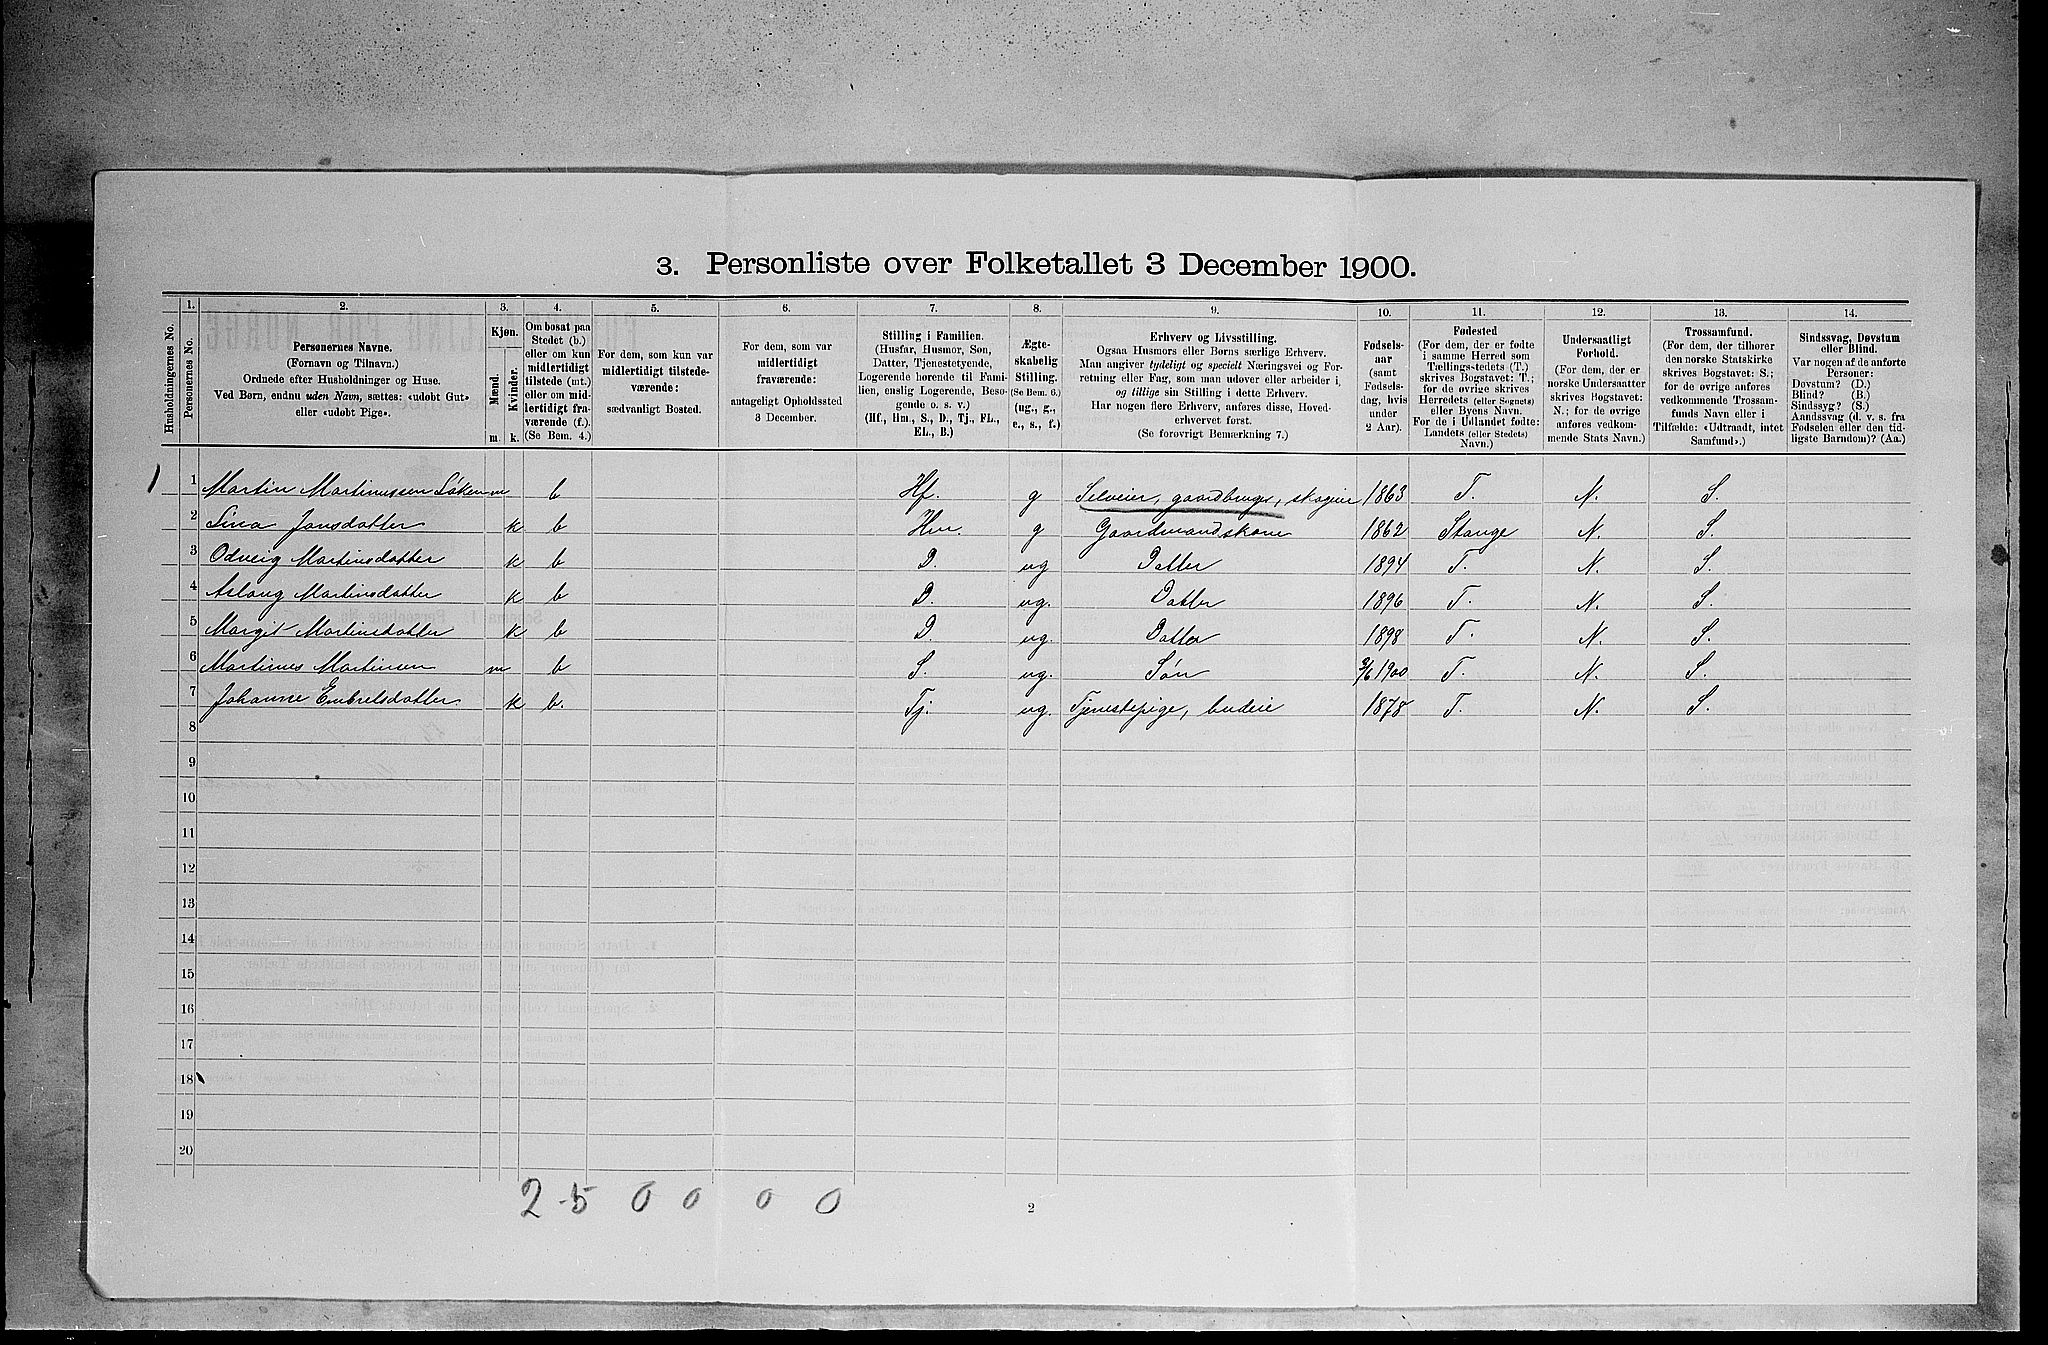 3. Personliste over Folketallet 3 December 1900.
1. 2. 3. 4. 5. 6. 7. 8. 9. 10. 11. 12. 13. 14.
Husholdningernes No.
Personernes No.
Personernes Navne.
(Fornavn og Tilnavn.)
Ordnede efter Husholdninger og Huse.
Ved Børn, endnu uden Navn, sættes: «udøbt Gut»
eller «udøbt Pige».
Kjøn.
Mænd.
Kvinder.
m. k.
Om bosat paa
Stedet (b.)
eller om kun
midlertidigt
tilstede (mt.)
eller om mid-
lertidigt fra-
værende (f.).
(Se Bem. 4.)
For dem, som kun var
midlertidigt tilstede-
værende:
sædvanligt Bosted.
For dem, som var
midlertidigt
fraværende:
antageligt Opholdssted
3 December.
Stilling i Familien.
(Husfar, Husmor, Søn,
Datter, Tjenestetyende,
Logerende hørende til Fami-
lien, enslig Logerende, Besø-
gende o. s. v.)
(Hf., Hm., S., D., Tj., FL.,
EL., B.)
Ægte-
skabelig
Stilling.
(Se Bem. 6.)
(ug., g.,
e., s., f.)
Erhverv og Livsstilling.
Ogsaa Husmors eller Børns særlige Erhverv.
Man angiver tydeligt og specielt Næringsvei og For-
retning eller Fag, som man udøver eller arbeider i,
og tillige sin Stilling i dette Erhverv.
Har nogen flere Erhverv, anføres disse, Hoved-
erhvervet først.
(Se forøvrigt Bemærkning 7.)
Fødsels-
aar
(samt
Fødsels-
dag, hvis
under
2 Aar).
Fødested
(For dem, der er fødte
i samme Herred som
Tællings-stedets (T.)
skrives Bogstavet: T.;
for de øvrige skrives
Herredets (eller Sognets)
eller Byens Navn.
For de i Udlandet fødte:
Landets (eller Stedets)
Navn.)
Undersaatligt
Forhold.
(For dem, der er
norske Undersaatter
skrives Bogstavet:
N.; for de øvrige
anføres vedkom-
mende Stats Navn.)
Trossamfund.
(For dem, der tilhører
den norske Statskirke
skrives Bogstavet: S.;
for de øvrige anføres
vedkommende Trossam-
funds Navn eller i
Tilfælde: «Udtraadt, intet
Samfund».)
Sindssvag, Døvstum
eller Blind.
Var nogen af de anførte
Personer:
Døvstum? (D.)
Blind? (B.)
Sindssyg? (S.)
Aandssvag (d. v. s. fra
Fødselen eller den tid-
ligste Barndom)? (Aa.)
1 1 Martin Martinussen Løken m b Hf. g Selveier, gaardbruger, skogeier 1863 T. N. S.
2 Lina Jonsdatter k b Hm. g Gaardmandskone 1862 Stange N. S.
3 Odveig Martinsdatter k b D. ug Datter 1894 T. N. S.
4 Aslaug Martinsdatter k b D. ug. Datter 1896 T. N. S.
5 Margit Martinsdatter k b D. ug. Datter 1898 T. N. S.
6 Martinus Martinsen m b S. ug. Søn 3/6 1900 T. N. S.
7 Johanne Embretsdatter k b. Tj. ug. Tjenestepige, budeie 1878 T. N. S.
8
9
10
11
12
13
14
15
16
17
18
19
20
2-5 0 0 0 0
2